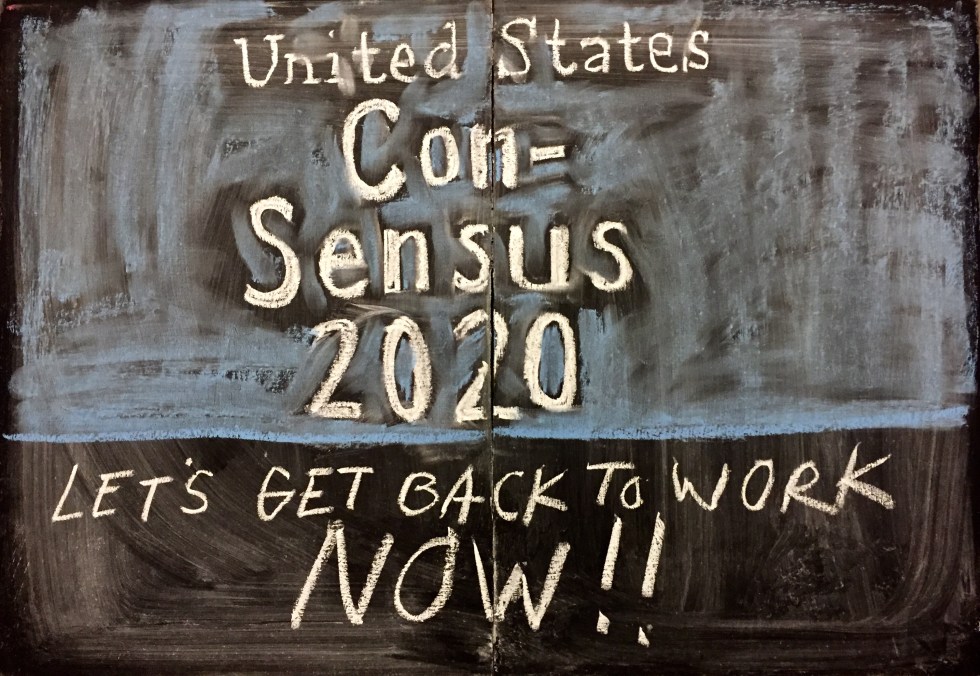 United States
Con=
Sensus
2020
LET'S GET BACK TO WORK
NOW!!